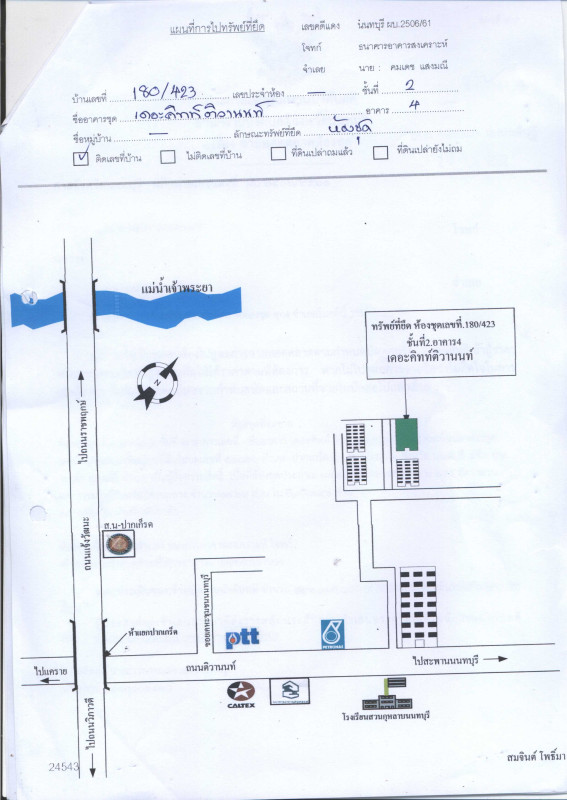 แผนที่การไปทรัพย์ที่ยึด
เลขคดีแดง นนทบุรี ผบ.2506/61
โจทก์ ธนาคารอาคารสงเคราะห์
จำเลย นาย : คมเดช แสงมณี
บ้านเลขที่ 180/423 เลขประจำห้อง — ชั้นที่ 2
ชื่ออาคารชุด เดอะคิทท์ติวานนท์ อาคาร 4
ชื่อหมู่บ้าน — ลักษณะทรัพย์ที่ยึด ห้องชุด
ติดเลขที่บ้าน ไม่ติดเลขที่บ้าน ที่ดินเปล่าถมแล้ว ที่ดินเปล่ายังไม่ถม
แม่น้ำเจ้าพระยา
ทรัพย์ที่ยึด ห้องชุดเลขที่.180/423
ชั้นที่2.อาคาร4
เดอะคิทท์ติวานนท์
N
ไปถนนราชพฤกษ์
ถนนแจ้งวัฒนะ
ส.น-ปากเกร็ด
ซอยเคหะชุมชนนนทบุรี
ห้าแยกปากเกร็ด
ptt
ไปแคราย
ถนนติวานนท์
ไปสะพานนนทบุรี
CALTEX
โรงเรียนสวนกุหลาบนนทบุรี
ไปถนนวิภาวดี
สมจินต์ โพธิ์มา
24543